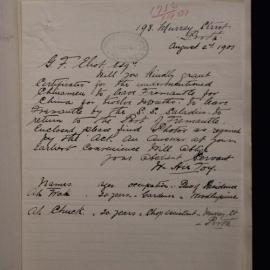 193. Murray Street
Perth
August 2nd 1901
G. F. Eliot Esqr
Will you kindly grant
Certificates for the undermentioned
Chinamen to leave Fremantle for
China for twelve months. To leave
Fremantle by the S. S. Paladin. To
return to the Port of Fremantle
Enclosed please find Photos as required
by the Act. An answer at your
Earliest Convenience will oblige
your obedient Servant
Names ages occupation Place Residence
Ah Wah 30 years Gardener
Ah Chuck 30 years Shop assistant Murray St
Perth